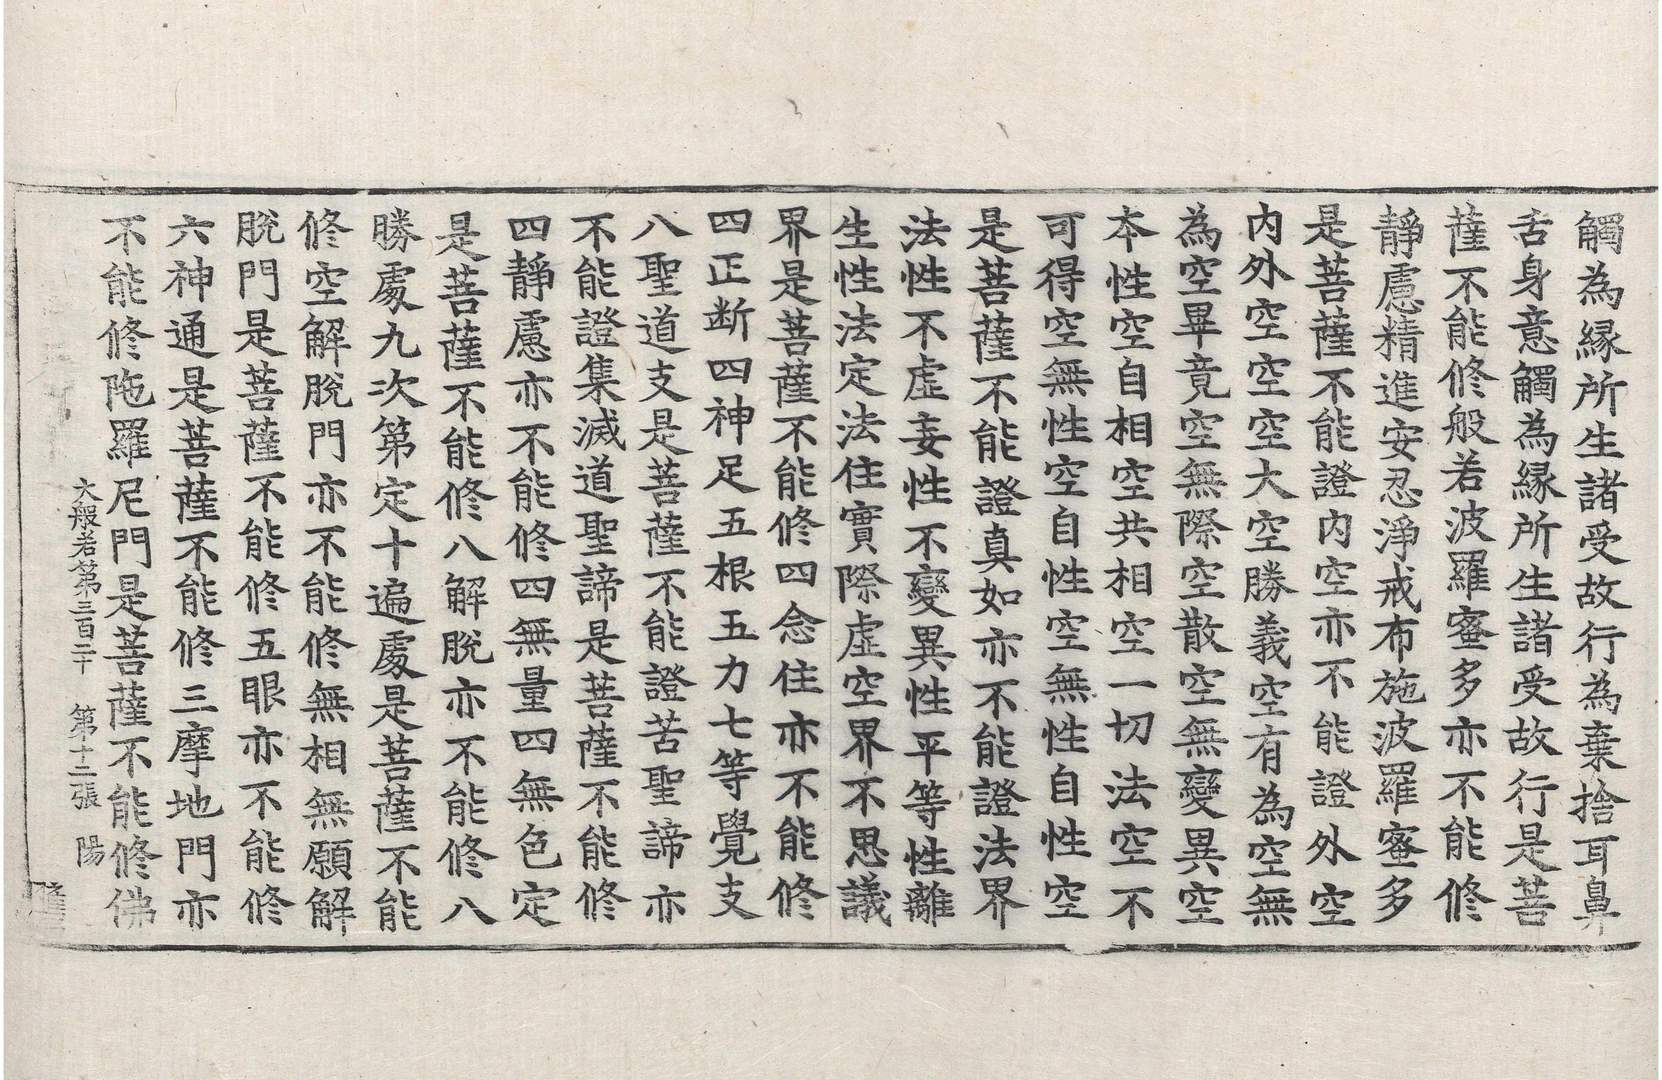 觸為縁所生諸受故行為棄捨耳鼻
舌身意觸為縁所生諸受故行是菩
薩不能修般若波羅蜜多亦不能修
靜慮精進安忍淨戒布施波羅蜜多
是菩薩不能證内空亦不能證外空
内外空空空大空勝義空有為空無
為空畢竟空無際空散空無變異空
本性空自相空共相空一切法空不
可得空無性空自性空無性自性空
是菩薩不能證真如亦不能證法界
法性不虚妄性不變異性平等性離
生性法定法住實際虚空界不思議
界是菩薩不能修四念住亦不能修
四正断四神足五根五力七等覺支
八聖道支是菩薩不能證苦聖諦亦
不能證集滅道聖諦是菩薩不能修
四靜慮亦不能修四無量四無色定
是菩薩不能修八解脫亦不能修八
勝處九次第定十遍處是菩薩不能
修空解脫門亦不能修無相無願解
脫門是菩薩不能修五眼亦不能修
六神通是菩薩不能修三摩地門亦
不能修陁羅尼門是菩薩不能修佛
大般若第三百二十 第十二張 陽